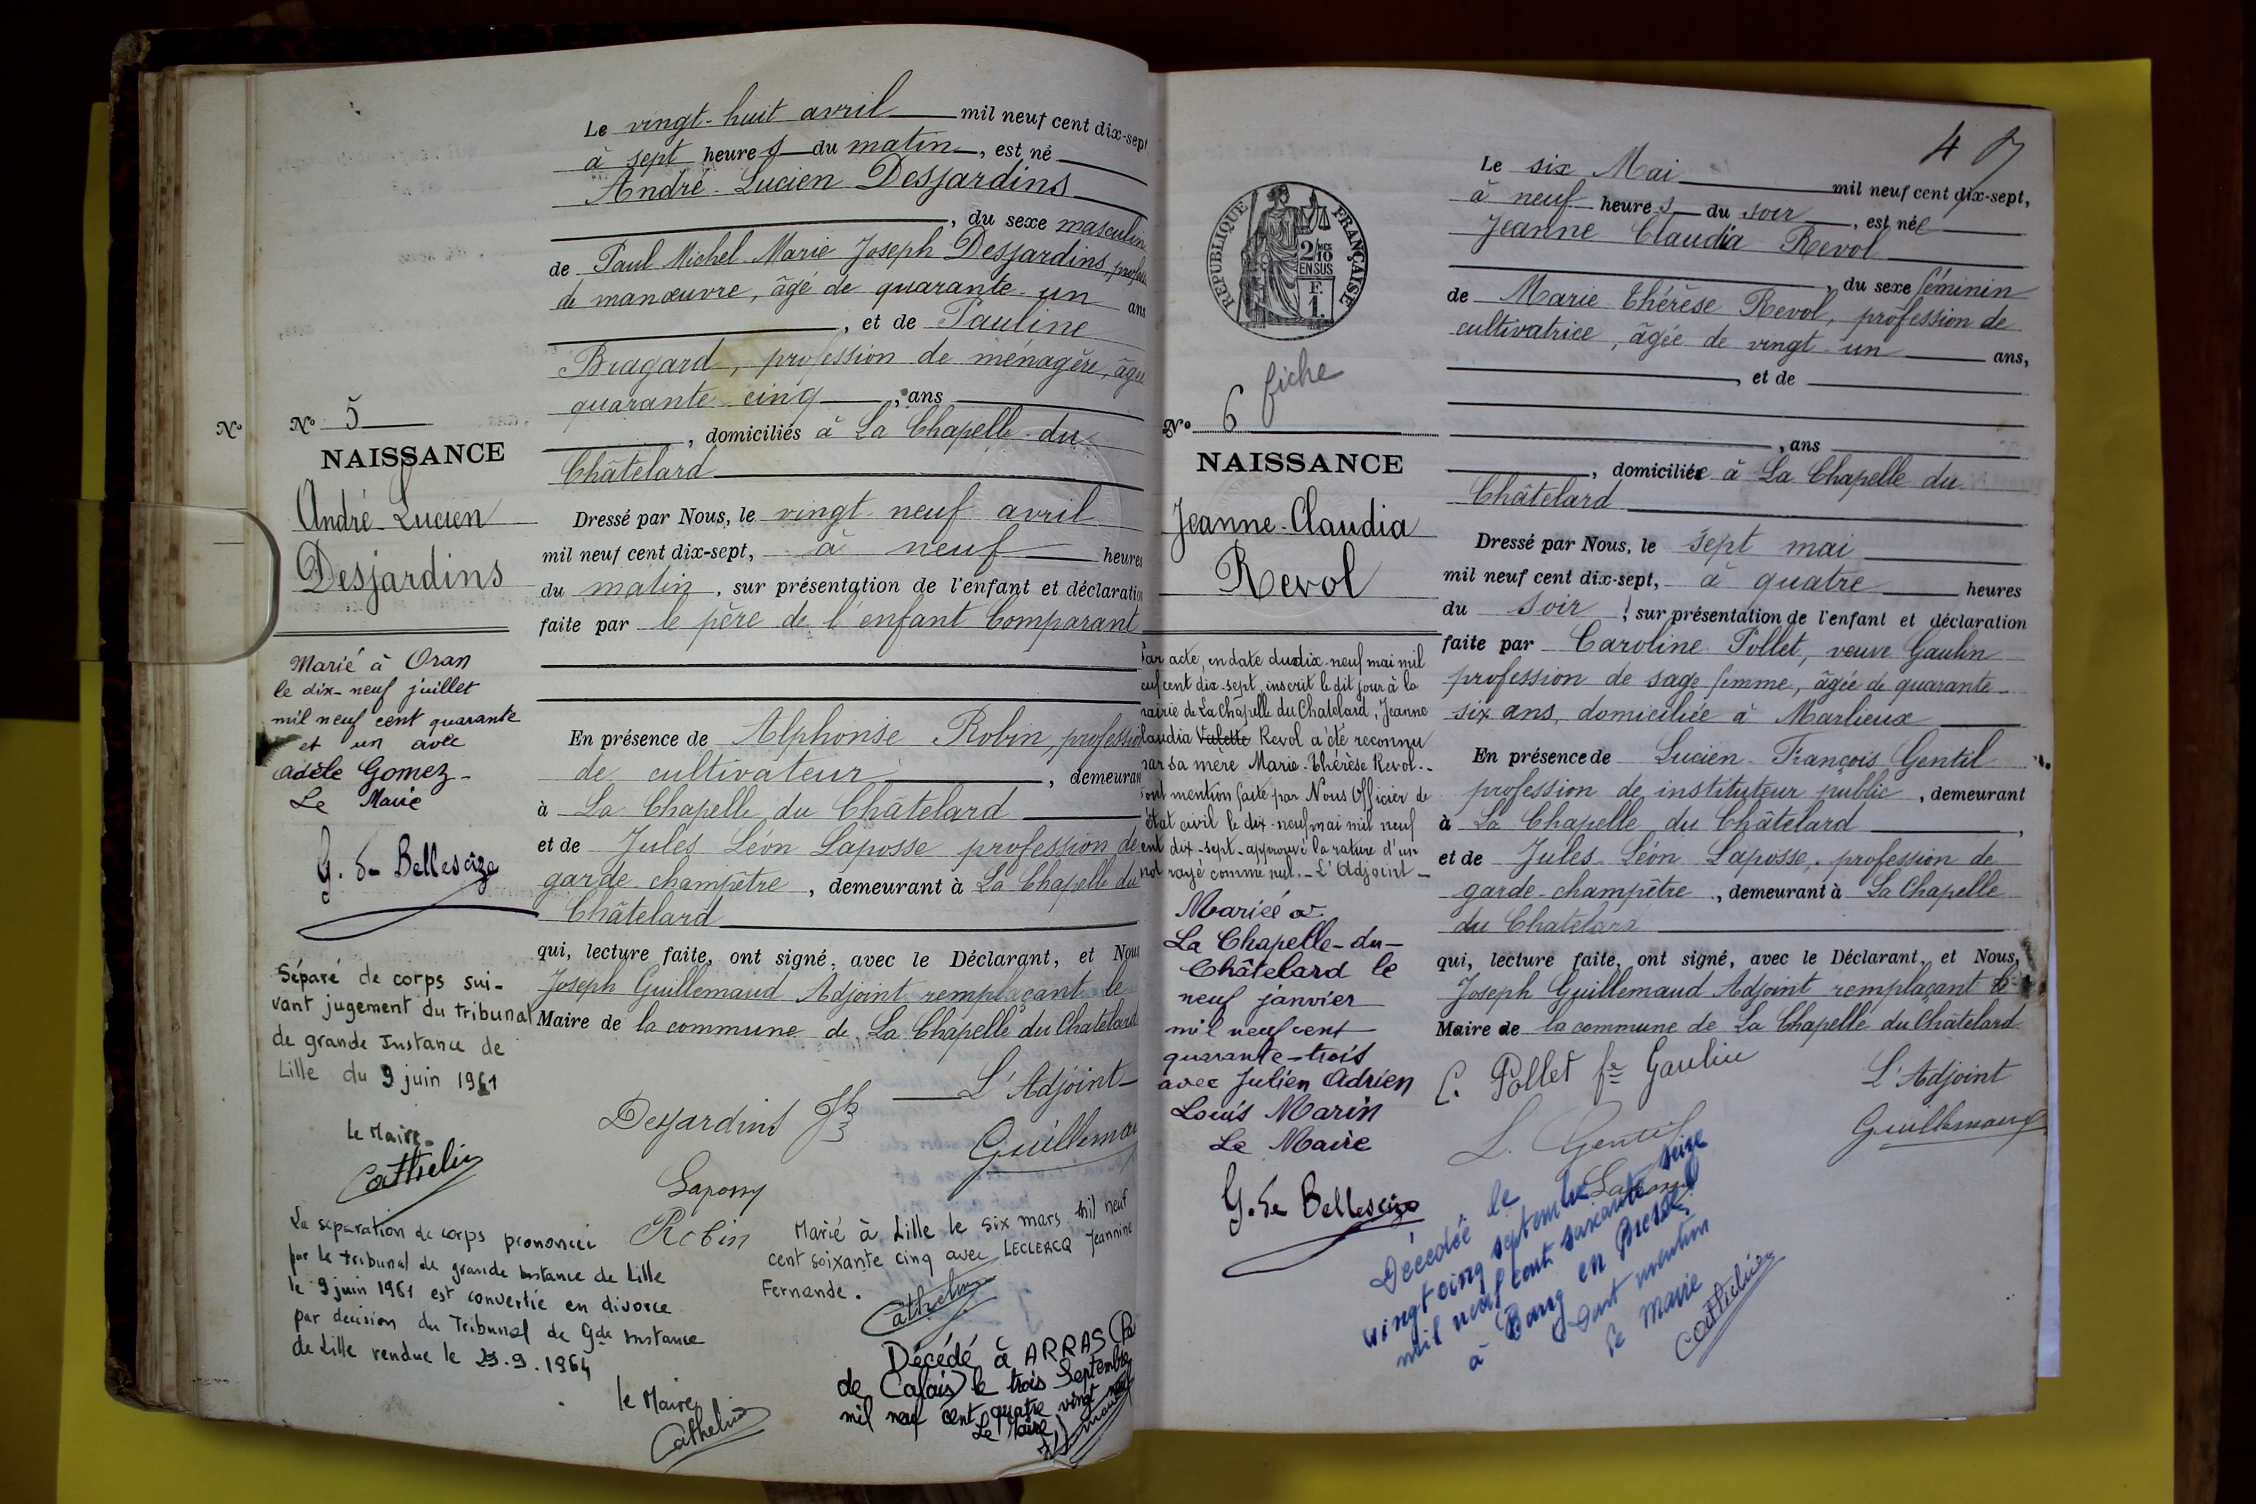 Le vingt-huit avril mil neuf cent dix-sept
à sept heures du matin, est né
André Lucien Desjardins
, du sexe masculin
de Paul Michel Marie Joseph Desjardins,
de manœuvre, âgé de quarante-un ans
, et de Pauline
Bragard, profession de ménagère, âgée
quarante cinq, ans
, domiciliés à La Chapelle-du
Châtelard
Nº
Nº 5
NAISSANCE
André-Lucien
Desjardins
Dressé par Nous, le vingt neuf avril
mil neuf cent dix-sept, à neuf heures
du matin, sur présentation de l'enfant et déclaration
faite par le père de l'enfant Comparant
En présence de Alphonse Robin, profession
de cultivateur, demeurant
à La Chapelle du Châtelard
et de Jules Léon Laposse profession de
garde champêtre, demeurant à La Chapelle du
Châtelard
qui, lecture faite, ont signé, avec le Déclarant, et Nous
Joseph Guillemaud Adjoint remplaçant le
Maire de la commune de La Chapelle du Chatelard
L'Adjoint
Desjardins
Guillemaud
Laposse
Robin
Marié à Oran
le dix-neuf juillet
mil neuf cent quarante
et un avec
Adèle Gomez-
Le Maire
G. de Bellescize
Séparé de corps sui-
vant jugement du tribunal
de grande Instance de
Lille du 9 juin 1961
le Maire
Cathelin
La séparation de corps prononcée
par le tribunal de grande Instance de Lille
le 9 juin 1961 est convertie en divorce
par décision du Tribunal de Gde Instance
de Lille rendue le .9.1964
le Maire
Cathelin
Marié à Lille le six mars mil neuf
cent soixante cinq avec LECLERCQ Jeannine
Fernande.
Cathelin
Décédé à ARRAS (Pas
de Calais) le trois Septembre
mil neuf cent quatre vingt
Le Maire
4
Le six Mai mil neuf cent dix-sept,
à neuf heures du soir, est née
Jeanne Claudia Revol
, du sexe féminin
de Marie Thérèse Revol, profession de
cultivatrice, âgée de vingt-un ans,
, et de
, ans
, domiciliée à La Chapelle du
Châtelard
RÉPUBLIQUE FRANÇAISE
2/10
EN SUS
F.
1.
fiche
Nº 6
NAISSANCE
Jeanne-Claudia
Revol
Dressé par Nous, le sept mai
mil neuf cent dix-sept, à quatre heures
du soir, sur présentation de l'enfant et déclaration
faite par Caroline Pollet, veuve Gaulin
profession de sage femme, âgée de quarante-
six ans, domiciliée à Marlieux
En présence de Lucien François Gentil
profession de instituteur public, demeurant
à La Chapelle du Châtelard,
et de Jules Léon Laposse, profession de
garde-champêtre, demeurant à La Chapelle
du Chatelard
qui, lecture faite, ont signé, avec le Déclarant, et Nous,
Joseph Guillemaud Adjoint remplaçant le
Maire de la commune de La Chapelle du Châtelard
C. Pollet fe Gaulin
L'Adjoint
L. Gentil
Guillemaud
Laposse
Par acte, en date du dix-neuf mai mil
neuf cent dix-sept, inscrit le dit jour à la
mairie de La Chapelle du Chatelard, Jeanne
Claudia Valette Revol a été reconnu
par sa mère Marie-Thérèse Revol.-
Dont mention faite par Nous Officier de
l'état civil le dix-neuf mai mil neuf
cent dix-sept-approuvé la rature d'un
mot rayé comme nul.- L'Adjoint-
Mariée à
La Chapelle-du-
Châtelard le
neuf janvier
mil neuf cent
quarante-trois
avec Julien Adrien
Louis Marin
Le Maire
G. de Bellescize
Décédée le
vingt cinq septembre
mil neuf cent soixante seize
à Bourg en Bresse
Dont mention
le Maire
Cathelin